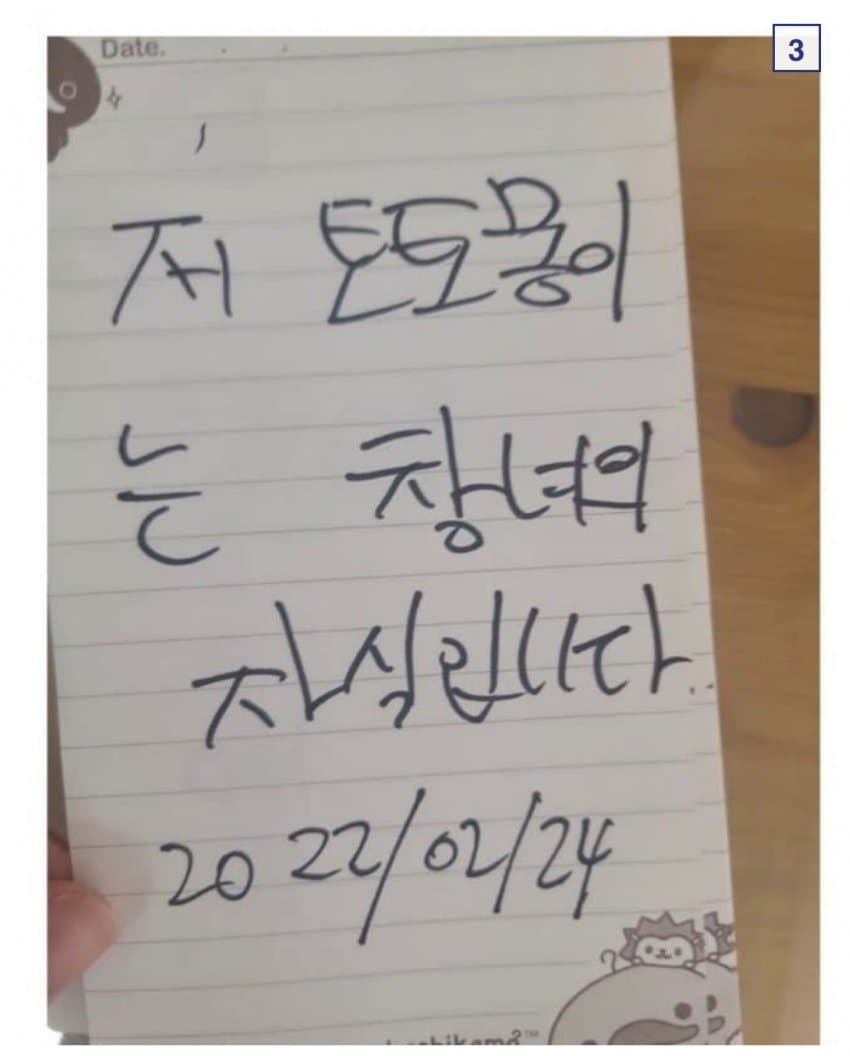 3
Date.
저 토도몽이
는 창녀의
자식입니다..
2022/02/24